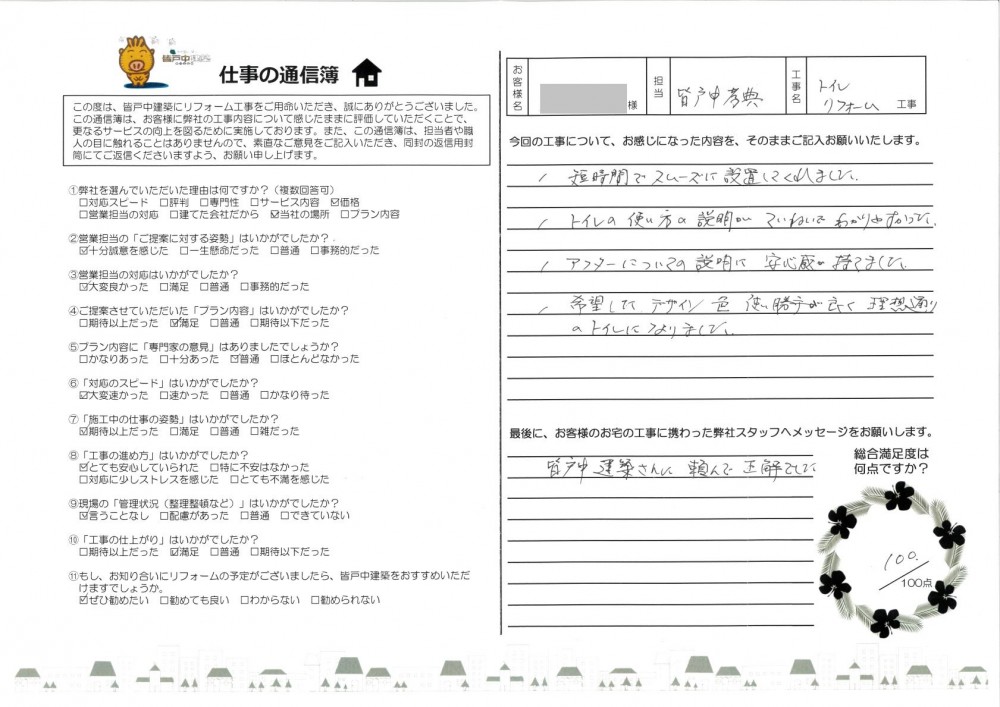 皆戸中
仕事の通信簿
この度は、皆戸中建築にリフォーム工事をご用命いただき、誠にありがとうございました。
この通信簿は、お客様に弊社の工事内容について感じたままに評価していただくことで、
更なるサービスの向上を図るために実施しております。また、この通信簿は、担当者や職
人の目に触れることはありませんので、素直なご意見をご記入いただき、同封の返信用封
筒にてご返信くださいますよう、お願い申し上げます。
①弊社を選んでいただいた理由は何ですか？（複数回答可）
□対応スピード □評判 □専門性 □サービス内容 ☑価格
□営業担当の対応 □建てた会社だから ☑当社の場所 □プラン内容
②営業担当の「ご提案に対する姿勢」はいかがでしたか？
☑十分誠意を感じた □一生懸命だった □普通 □事務的だった
③営業担当の対応はいかがでしたか？
☑大変良かった □満足 □普通 □事務的だった
④ご提案させていただいた「プラン内容」はいかがでしたか？
□期待以上だった ☑満足 □普通 □期待以下だった
⑤プラン内容に「専門家の意見」はありましたでしょうか？
□かなりあった □十分あった ☑普通 □ほとんどなかった
⑥「対応のスピード」はいかがでしたか？
☑大変速かった □速かった □普通 □かなり待った
⑦「施工中の仕事の姿勢」はいかがでしたか？
☑期待以上だった □満足 □普通 □雑だった
⑧「工事の進め方」はいかがでしたか？
☑とても安心していられた □特に不安はなかった
□対応に少しストレスを感じた □とても不満を感じた
⑨現場の「管理状況（整理整頓など）」はいかがでしたか？
☑言うことなし □配慮があった □普通 □できていない
⑩「工事の仕上がり」はいかがでしたか？
□期待以上だった ☑満足 □普通 □期待以下だった
⑪もし、お知り合いにリフォームの予定がございましたら、皆戸中建築をおすすめいただ
けますでしょうか。
☑ぜひ勧めたい □勧めても良い □わからない □勧められない
お客様名 様 担当 皆戸中孝典 工事名 トイレ
リフォーム 工事
今回の工事について、お感じになった内容を、そのままご記入お願いいたします。
、短時間でスムーズに設置してくれました。
、トイレの使い方の説明がていねいでわかりやすかった。
、アフターについての説明に安心感が持てました。
、希望してたデザイン 色 使い勝手が良く 理想通り
のトイレになりました。
最後に、お客様のお宅の工事に携わった弊社スタッフへメッセージをお願いします。
皆戸中建築さんに頼んで正解でした
総合満足度は
何点ですか？
100.
100点